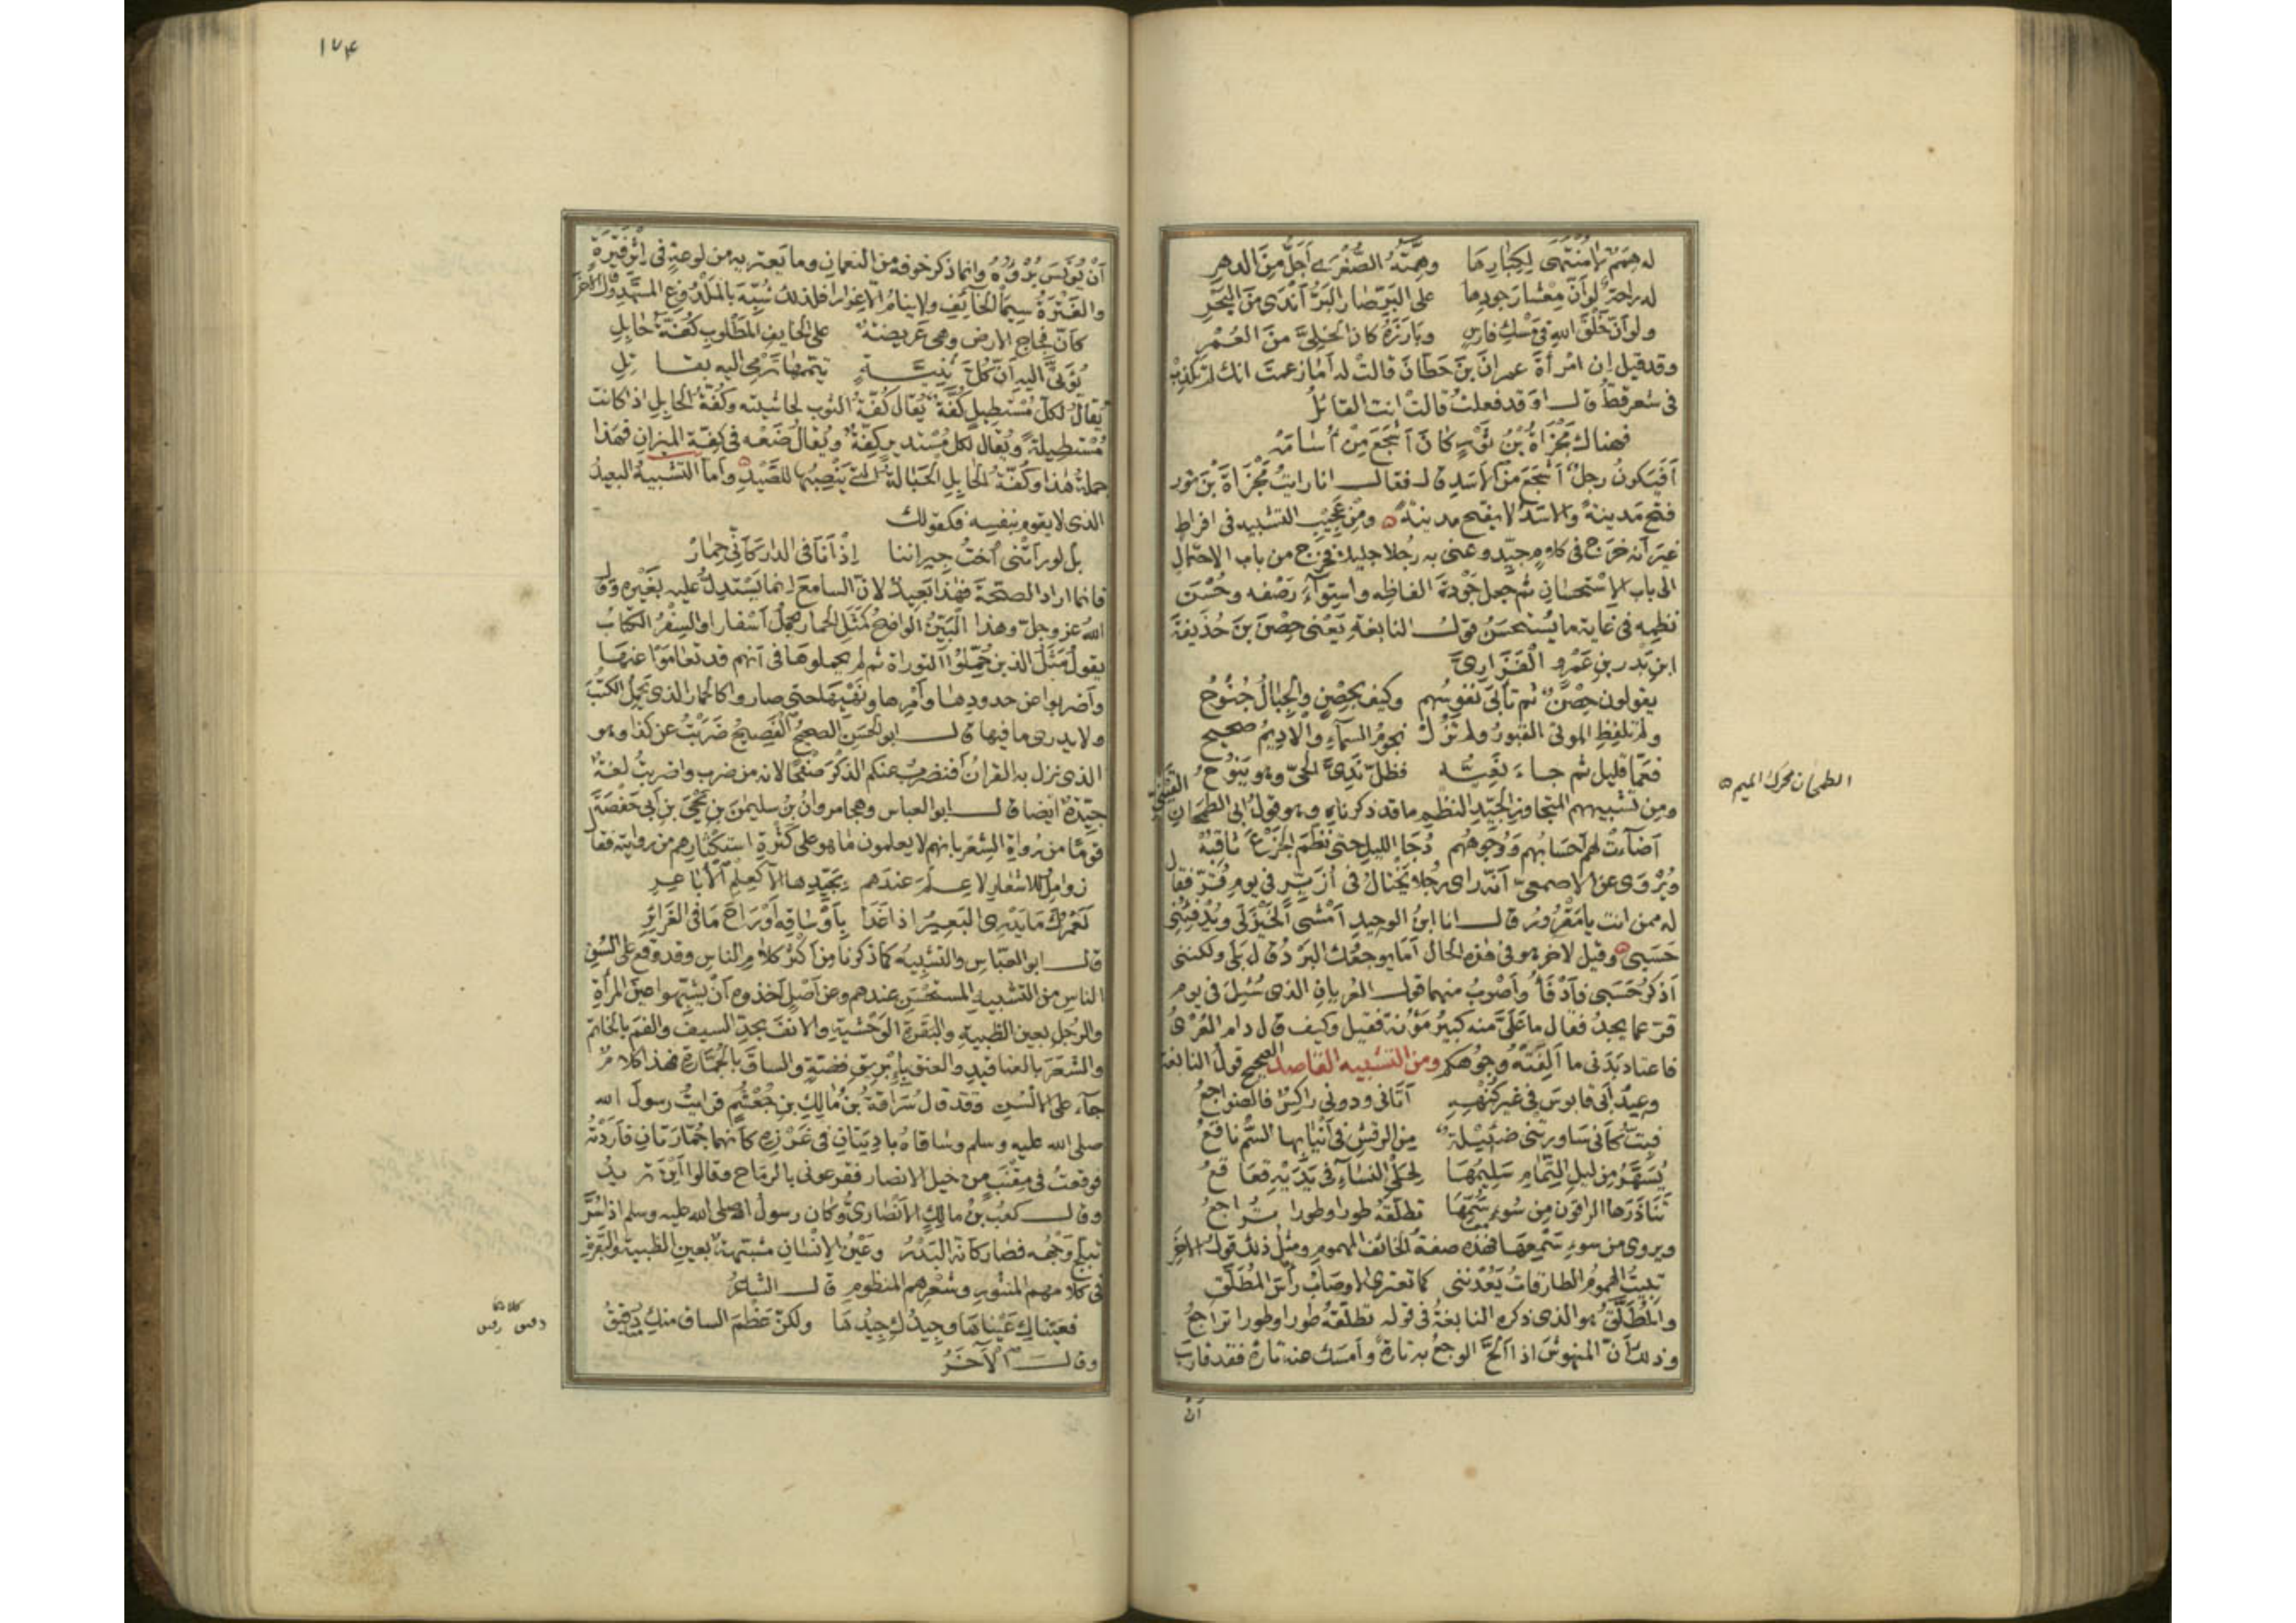 له همم لا منتهى لكبارها وهمته الصغرى أجل من الدهر
له راحة لو أن معشار جودها على البر صار البر أندى من البحر
ولو أن خلق الله في مسك فارس وبارزه كان الخلي من العمر
وقد قيل ان امرأة عمران بن حطان قالت له أما زعمت انك لم تكذب
في شعر قط قال او قد فعلت قالت انت القائل
فهناك مجزأة بن ثور كان أشجع من أسامه
أفيكون رجل أشجع من الأسد قال فقال انا رايت مجزأة بن ثور
فتح مدينة والاسد لا يفتح مدينة ومن عجيب التشبيه في افراط
غير أنه خرج في كلام جيد وعنى به رجلا جليلا فخرج من باب الاحتمال
الى باب الاستحسان ثم جعل جودة الفاظه واستواء رصفه وحسن
نظمه في غاية ما يستحسن قول النابغة يعنى حصن بن حذيفة
ابن بدر بن عمرو الفزاري
يقولون حصن ثم تأبى نفوسهم وكيف بحصن والجبال جنوح
ولم تلفظ الموتى القبور ولم تزل نجوم السماء والاديم صحيح
فعما قليل ثم جاء نعيه فظل ندي الحي وهو ينوح
ومن تشبيههم المتجاوز الجيد النظم ما قد ذكرناه وهو قول ابى الطمحان القيني
أضاءت لهم أحسابهم ووجوههم دجا الليل حتى نظم الجزع ثاقبه
ويروى عن الاصمعي أنه رأى رجلا يختال في أزير في يوم قر فقال
له ممن انت يا مقرور قال انا ابن الوحيد أمشى الخيزلى ويدفئنى
حسبى وقيل لاخر وهو في هذه الحال أما يوجعك البرد قال بلى ولكننى
أذكر حسبى فأدفأ وأصوب منهما قول العريان الذى سئل في يوم
قر عما يجد فقال ما علي منه كبير مؤنة فقيل وكيف قال دام العرى
فاعتاد بدنى ما ألفته وجوهكم ومن التشبيه القاصد الصحيح قول النابغة
وعيد أبى قابوس في غير كنهه أتانى ودونى راكس فالضواجع
فبت كأنى ساورتنى ضئيلة من الرقش في أنيابها السم ناقع
يسهد من ليل التمام سليمها لحلى النساء في يديه قعاقع
تناذرها الراقون من سوء سمها تطلقه طورا وطورا تراجع
ويروى من سوء سمعها فهذه صفة الخائف المهموم ومثل ذلك قول الاخر
تبيت الهموم الطارقات يعدننى كما تعترى الاوصاب رأس المطلق
والمطلق هو الذى ذكره النابغة في قوله تطلقه طورا وطورا تراجع
وذلك أن المنهوش اذا ألح الوجع به تارة وأمسك عنه تارة فقد قارب
أن
الطمحان محرك الميم
١٧٤
أن يوئس برؤه وانما ذكر خوفه من النعمان وما يعتريه من لوعة في اثر فترة
والفترة سيما الخائف ولا ينام الا غرارا فلذلك شبه بالملدوغ المسهد وقال الآخر
كأن فجاج الارض وهى عريضة على الخايف المطلوب كفة حابل
يؤتى اليه أن كل ثنية تيممها ترمى اليه بقاتل
يقال لكل مستطيل كفة يقال كفة الثوب لحاشيته وكفة الحابل اذ كانت
مستطيلة ويقال لكل مستدير كفة ويقال ضعه في كفة الميزان فهذا
جملة هذا وكفة الحابل الحبالة التى ينصبها للصيد وأما التشبيه البعيد
الذى لا يقوم بنفسه فكقولك
بل لو رأتنى أخت جيراننا إذ أنا في الدار كأنى حمار
فانما اراد الصحة فهذا بعيد لان السامع انما يستدل عليه بغيره وقال
الله عز وجل وهذا البين الواضح كمثل الحمار يحمل أسفارا والسفر الكتاب
يقول مثل الذين حملوا التوراة ثم لم يحملوها في أنهم قد تعاموا عنها
وأضربوا عن حدودها وأمرها ونهيها حتى صاروا كالحمار الذى يحمل الكتب
ولا يدرى ما فيها قال ابو الحسن الصحيح الفصيح ضربت عن كذا وهو
الذى نزل به القرآن أفنضرب عنكم الذكر صفحا لانه من ضرب واضربت لغة
جيدة ايضا قال ابو العباس وهجا مروان بن سليمن بن يحيى بن أبى حفصة
قوما من رواة الشعر بانهم لا يعلمون ما هو على كثرة استكثارهم من روايته فقال
زوامل للاشعار لا علم عندهم بجيدها الا كعلم الأباعر
لعمرك ما يدرى البعير اذا غدا بأوساقه أو راح ما في الغرائر
قال ابو العباس والتشبيه كما ذكرنا من أكثر كلام الناس وقد وقع على السن
الناس من التشبيه المستحسن عندهم وعن أصل أخذوه أن يشبهوا عين المرأة
والرجل بعين الظبية والبقرة الوحشية والانف بحد السيف والفم بالخاتم
والشعر بالعناقيد والعنق بإبريق فضة والساق بالجمارة فهذا كلام
جاء على الألسن وقد قال سراقة بن مالك بن جعشم فرايت رسول الله
صلى الله عليه وسلم وساقاه باديتان في غرزه كأنهما جمارتان فأردته
فوقعت في مقنب من خيل الانصار فقرعونى بالرماح وقالوا أين تريد
وقال كعب بن مالك الأنصارى وكان رسول الله صلى الله عليه وسلم اذا سر
تبلج وجهه فصار كأنه البدر وعين الإنسان مشبهة بعين الظبية والبقرة
في كلامهم المنثور وشعرهم المنظوم قال الشاعر
فعيناك عيناها وجيدك جيدها ولكن عظم الساق منك دقيق
وقال الآخر